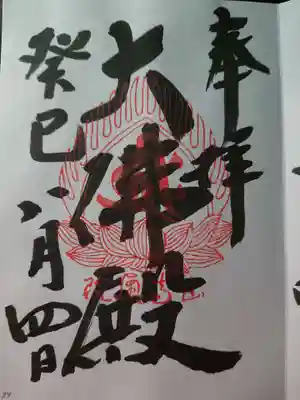 奉拝
大佛殿
癸巳八月四日